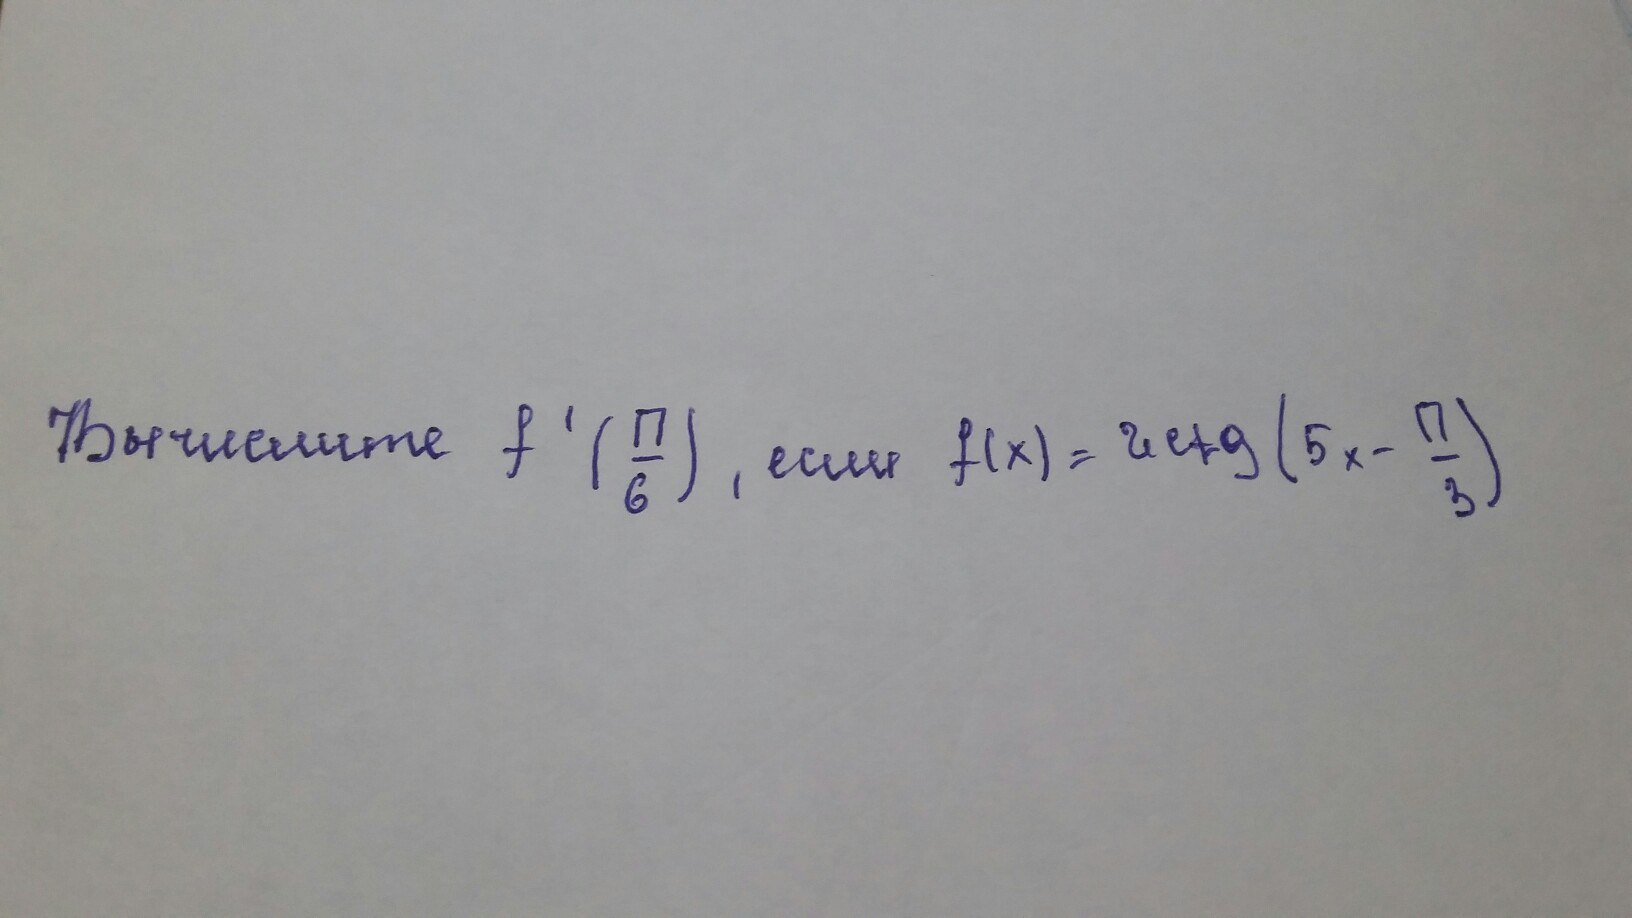 Вычислите f'(П/6), если f(x) = 2ctg(5x - П/3)